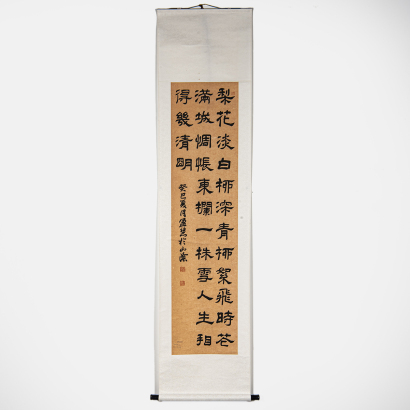 梨花淡白柳深青柳絮飛時花
滿城惆悵東欄一株雪人生看
得幾清明
癸巳夏月於山齋